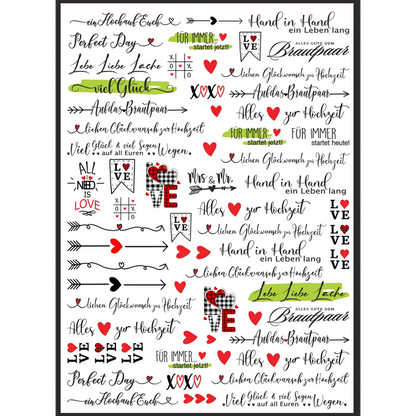 ein Hoch auf Euch
Hand in Hand
ein Leben lang
Perfect Day
FÜR IMMER...
startet jetzt!
LOVE
ALLES GUTE DEM
Brautpaar
Lebe Liebe Lache
XOX
viel Glück
XOXO
lichen Glückwunsch zur Hochzeit
Auf das Brautpaar
Alles zur Hochzeit
lichen Glückwunsch zur Hochzeit
FÜR IMMER...
startet jetzt!
FÜR IMMER
startet heute!
Viel Glück & viel Segen
auf all Euren Wegen
lichen Glückwunsch zur Hochzeit
ALL
YOU
NEED
IS
LOVE
LOVE
LOVE
Mrs & Mr.
Hand in Hand
ein Leben lang
Alles zur Hochzeit
LOVE
LOVE
lichen Glückwunsch zur Hochzeit
LOVE
Hand in Hand
ein Leben lang
LOVE
lichen Glückwunsch zur Hochzeit
lichen Glückwunsch zur Hochzeit
LOVE
Lebe Liebe Lache
ALLES GUTE DEM
Brautpaar
Alles zur Hochzeit
Auf das Brautpaar
LOVE LOVE LOVE
FÜR IMMER...
startet jetzt!
Alles zur Hochzeit
Perfect Day
XOXO
lichen Glückwunsch zur Hochzeit
ein Hoch auf Euch
Viel Glück & viel Segen
auf all Euren Wegen